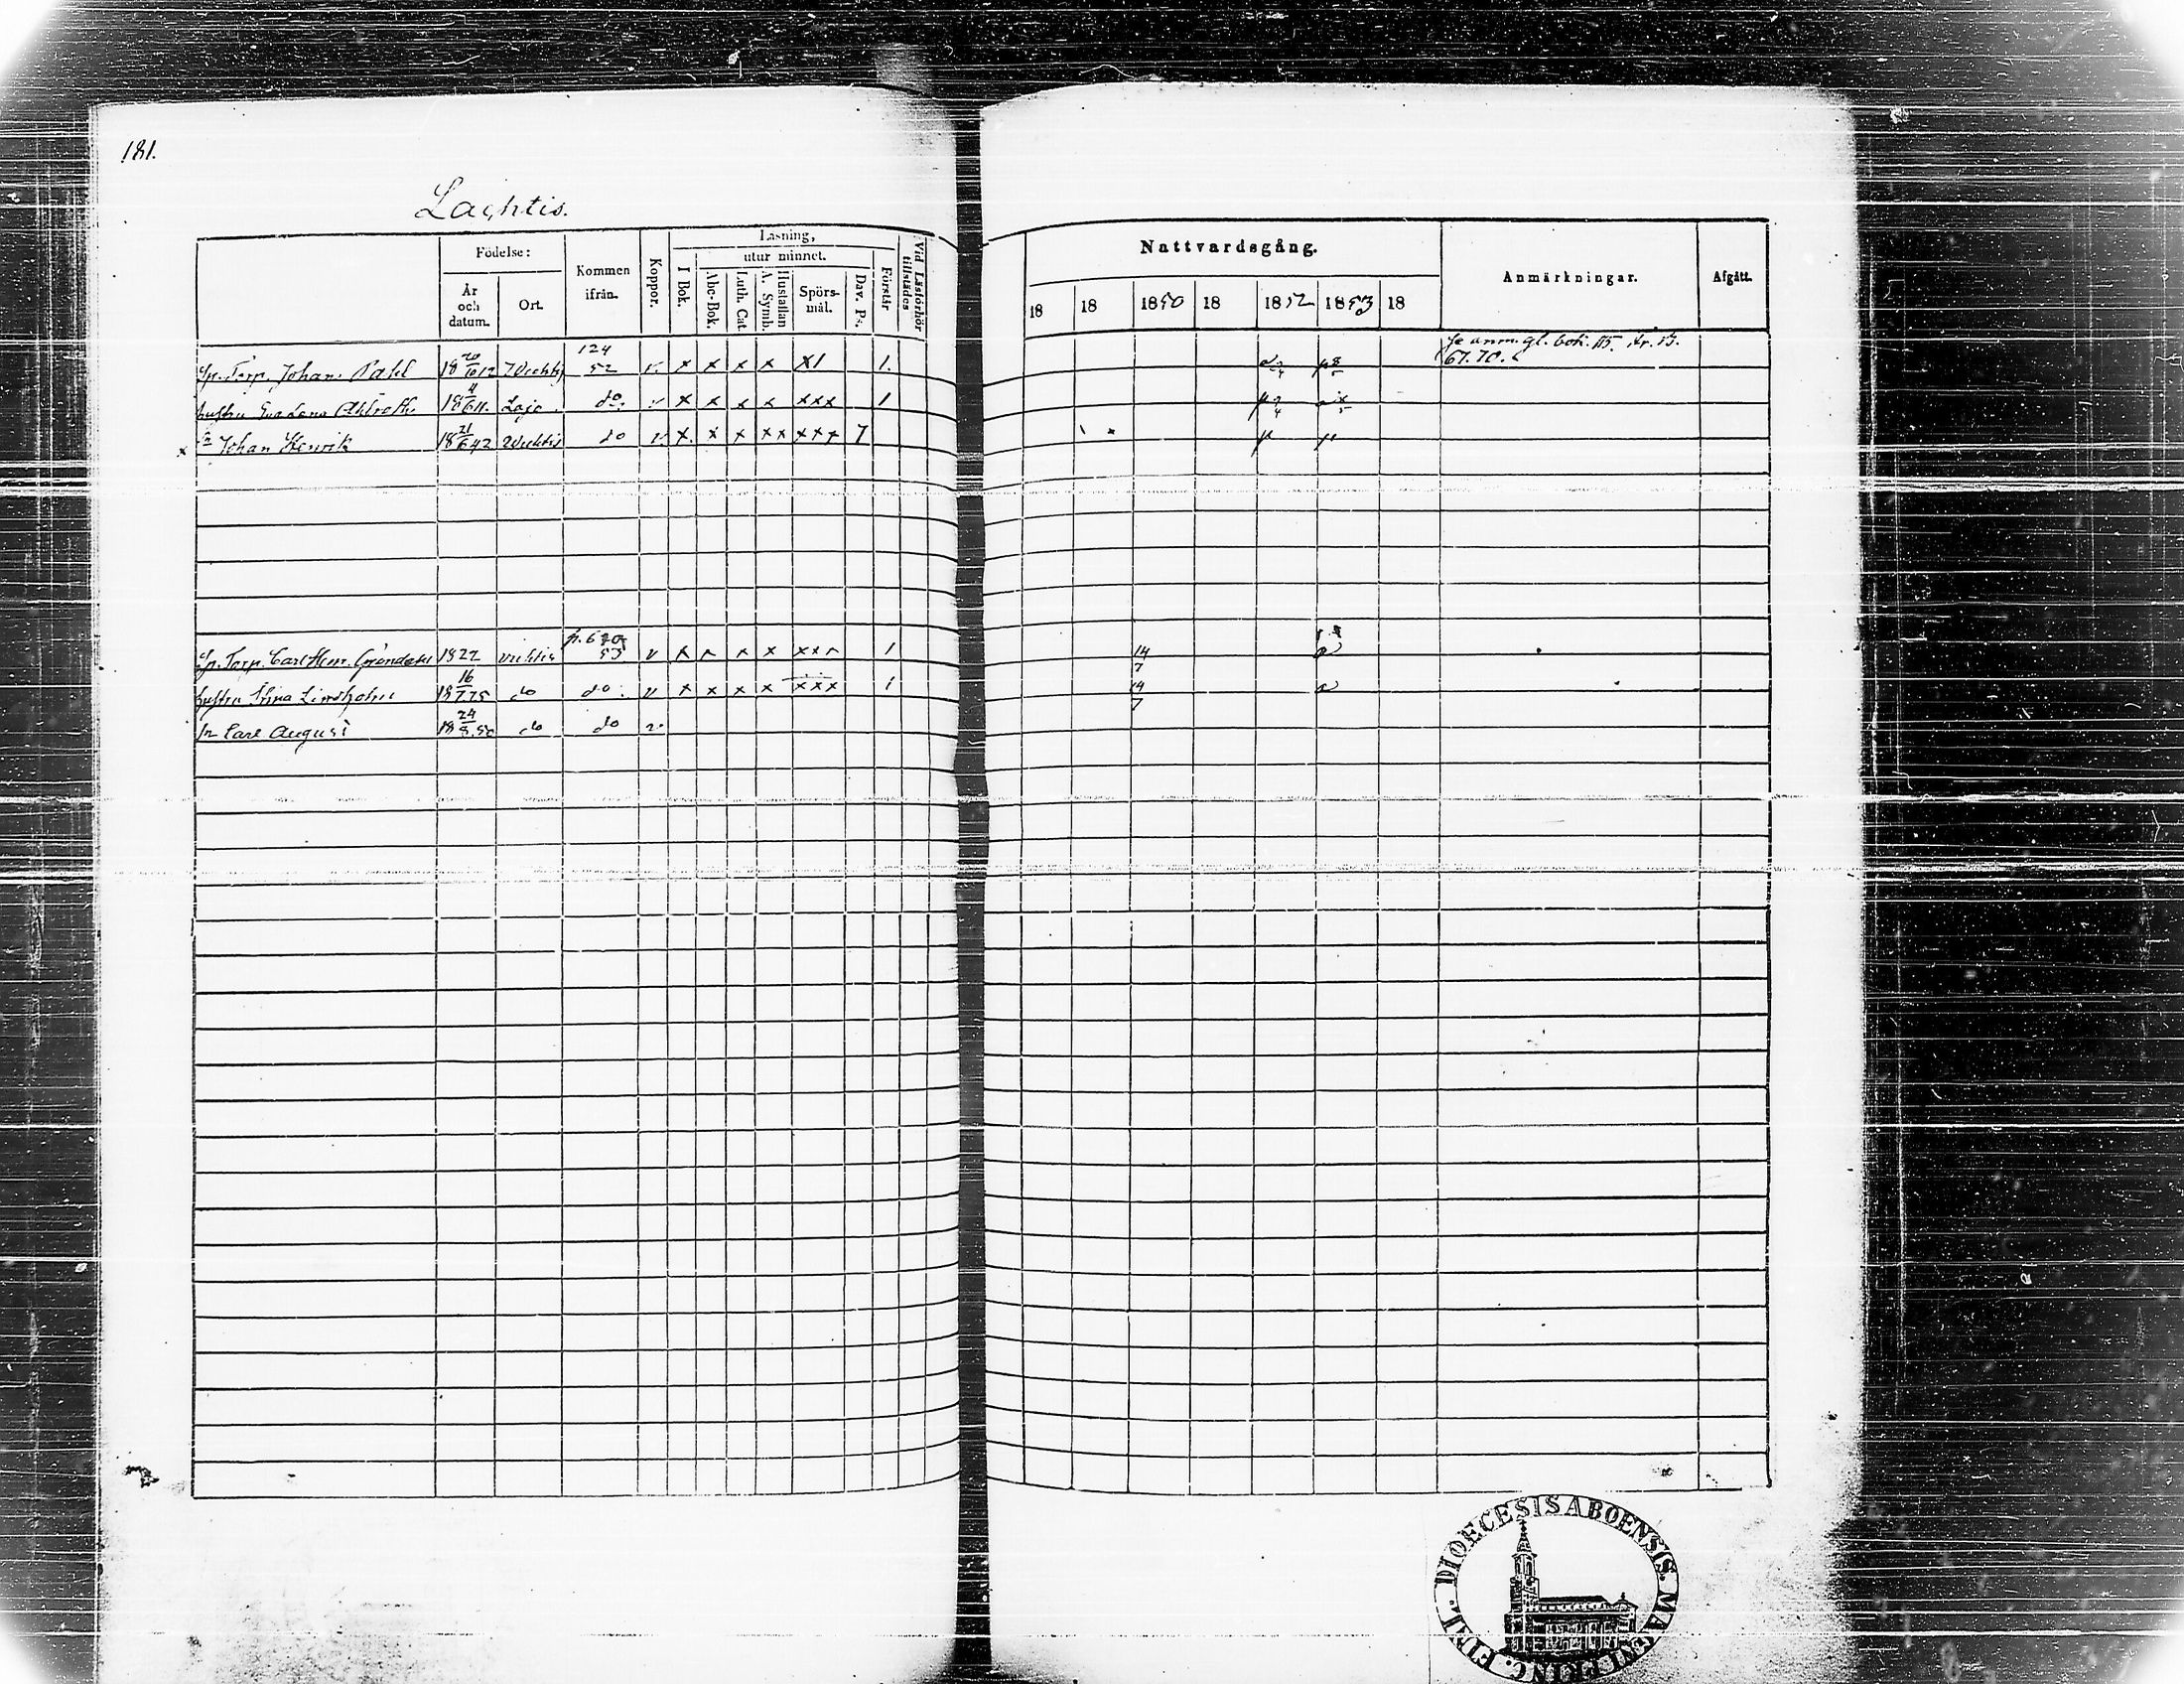 181.
Lachtis.
Födelse:
År och datum.
Ort.
Kommen ifrån.
Koppor.
Läsning,
utur minnet.
I Bok.
Abc-Bok.
Luth. Cat.
A. Symb.
Hustaflan
Spörs-mål.
Dav. Ps.
Förstår
Vid Läsförhör tillstädes
Nattvardsgång.
18 18 1850 18 1852 1853 18
Anmärkningar.
Afgått.
Sp. Torp. Johan Pahl 18 20/10 12 Wichtis 124 52 v x x x x x1 1.
anm. gl. bok.
67. 70.
hustru Eva Lena Ahlroth 18 4/6 11. Lojo do v x x x x xxx 1
x Johan Henrik 18 21/6 42 Wichtis do v x x x xx xxx 7
Sp. Torp. Carl Hen. Gröndahl 1822 Vichtis 53 v x x x x xxx 1 14/7
hustru Stina Lindholm 18 16/7 25 do do v x x x x xxx 1 14/7
Carl August 18 24/8 50 do do v
DIOECESIS ABOENSIS. MAGNI. FINL.